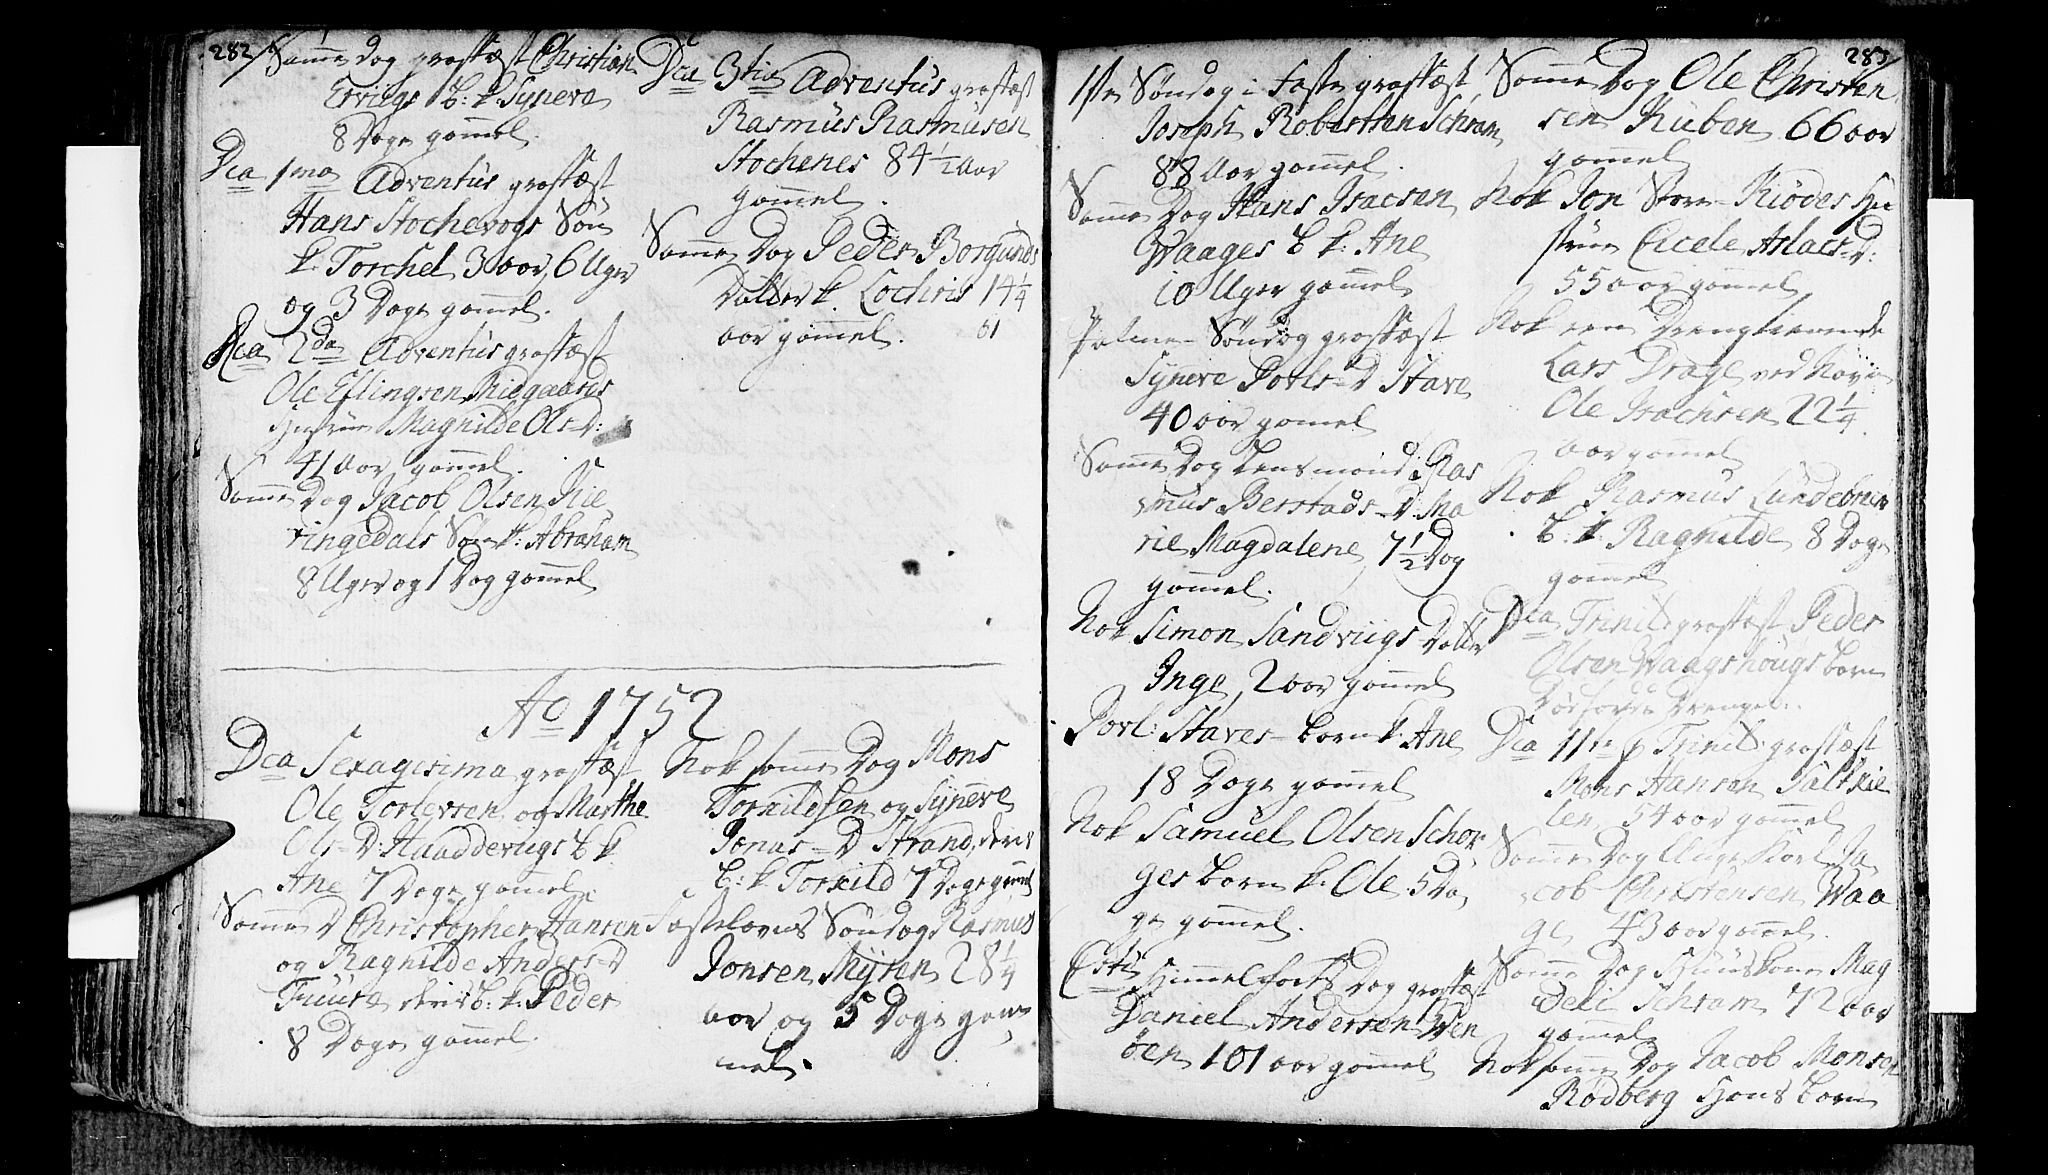 282
Samme dag græsfæst Christian
Erviigs B: k. Syneva
8 Dage gammel.
Dca 1ma Adventus græsfæst
Hans Stochevogs Søn
k. Torchel 3 aar, 6 Uger
og 3 Dage gammel.
Dca 2da Adventus græsfæst
Ole Ellingsen Riegaards
Hustrue Magnilde Ols-D:
41 Aar gammel.
Samme Dag Jacob Olsen Rie
ringedals Søn k: Abraham
8 Uger og 1 Dag gammel
Dca 3tia Adventus græsfæst
Rasmus Rasmusen
Stochenes 84 1/2 Aar
gammel.
Samme Dag Peder Borgunds
Datter k. Lochris 14 1/4
aar gammel.
61
Ao 1752
Dca Sexagesima græsfæst
Ole Torlevsen og Marthe
Ols-D: Haaddeviigs B k.
Ane 7 Dage gammel.
Samme D Christopher Hansen
og Ragnilde Anders-D
Fuure deris B: k: Peder
8 Dage gammel.
Nok samme Dag Mons
Torkildsen og Synneve
Jonas-D Strand, deris
B: k Torkild 7 Dage gammel
Fastelavns Søndag Rasmus
Jonsen Myren 28 1/4
aar og 5 Dage gam
mel.
283
1ste Søndag i Faste græsfæst
Joseph Robertsen Schram
88 Aar gammel.
Samme Dag Hans Isacsen
Waages B k: Ane
10 Uger gammel
Palme-Søndag græsfæst
Synneve Povls-D Stave
40 aar gammel
Samme Dag Lensmand Ras
mus Berstads-D: Ma
rie Magdalene 7 1/2 Dag
gammel.
Nok Simon Sandviigs Datter
Inge, 2 aar gammel
Povl: Staves-barn k: Ane
18 Dage gammel
Nok Samuel Olsen Schor
ges barn k. Ole, 5 Da
ge gammel.
Chri Himmelfarts Dag græsfæst
Daniel Andersen Wen
öen 101 aar gammel
Samme Dag Ole Christen
sen Kuben 66 aar
gammel
Nok Jon Store-Riødes Hu
strue Cicele Aslacs-D:
55 aar gammel
Nok een Dreng tienende
Lars Drage ved Navn
Ole Isachsen 22 1/4
aar gammel
Nok Rasmus Lundebrech
B: k. Ragnilde 8 Dage
gammel
Dca Trinit: græsfæst Peder
Olsen Waagshougs barn
Dødfødde Drengeb:
Dca 11te p Trinit: græsfæst
Mons Hansen Saltkie
len, 54 aar gammel
Samme Dag Unge Karl Ja
cob Christensen Waa
ge 43 aar gammel.
Samme Dag Huuskone Mag
deli Schram 72 aar
gammel
Nok samme Dag Jacob Monsen
Rødberg Hans barn